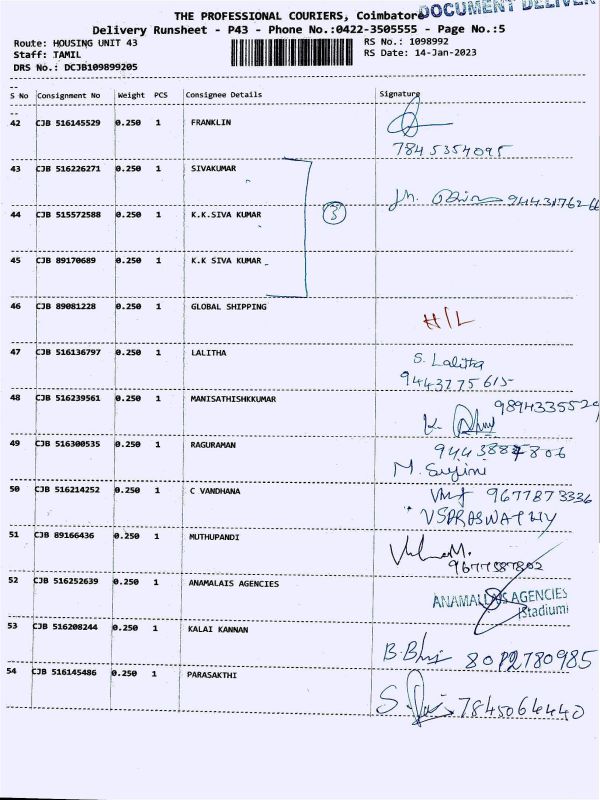 DOCUMENT DELIVER
THE PROFESSIONAL COURIERS, Coimbatore
Delivery Runsheet - P43 - Phone No.:0422-3505555 - Page No.:5
Route: HOUSING UNIT 43 RS No.: 1098992
Staff: TAMIL RS Date: 14-Jan-2023
DRS No.: DCJB109899205
S No Consignment No Weight PCS Consignee Details Signature
42 CJB 516145529 0.250 1 FRANKLIN
7845354095
43 CJB 516226271 0.250 1 SIVAKUMAR
44 CJB 515572588 0.250 1 K.K.SIVA KUMAR 3
45 CJB 89170689 0.250 1 K.K SIVA KUMAR
46 CJB 89081228 0.250 1 GLOBAL SHIPPING
H/L
47 CJB 516136797 0.250 1 LALITHA S. Lalitha
9443775615
48 CJB 516239561 0.250 1 MANISATHISHKKUMAR 9894335529
K.
49 CJB 516300535 0.250 1 RAGURAMAN
M.
50 CJB 516214252 0.250 1 C VANDHANA 9677873336
51 CJB 89166436 0.250 1 MUTHUPANDI
52 CJB 516252639 0.250 1 ANAMALAIS AGENCIES ANAMALLAIS AGENCIES
(Stadium)
53 CJB 516208244 0.250 1 KALAI KANNAN
8012780985
54 CJB 516145486 0.250 1 PARASAKTHI
S. 7845064440